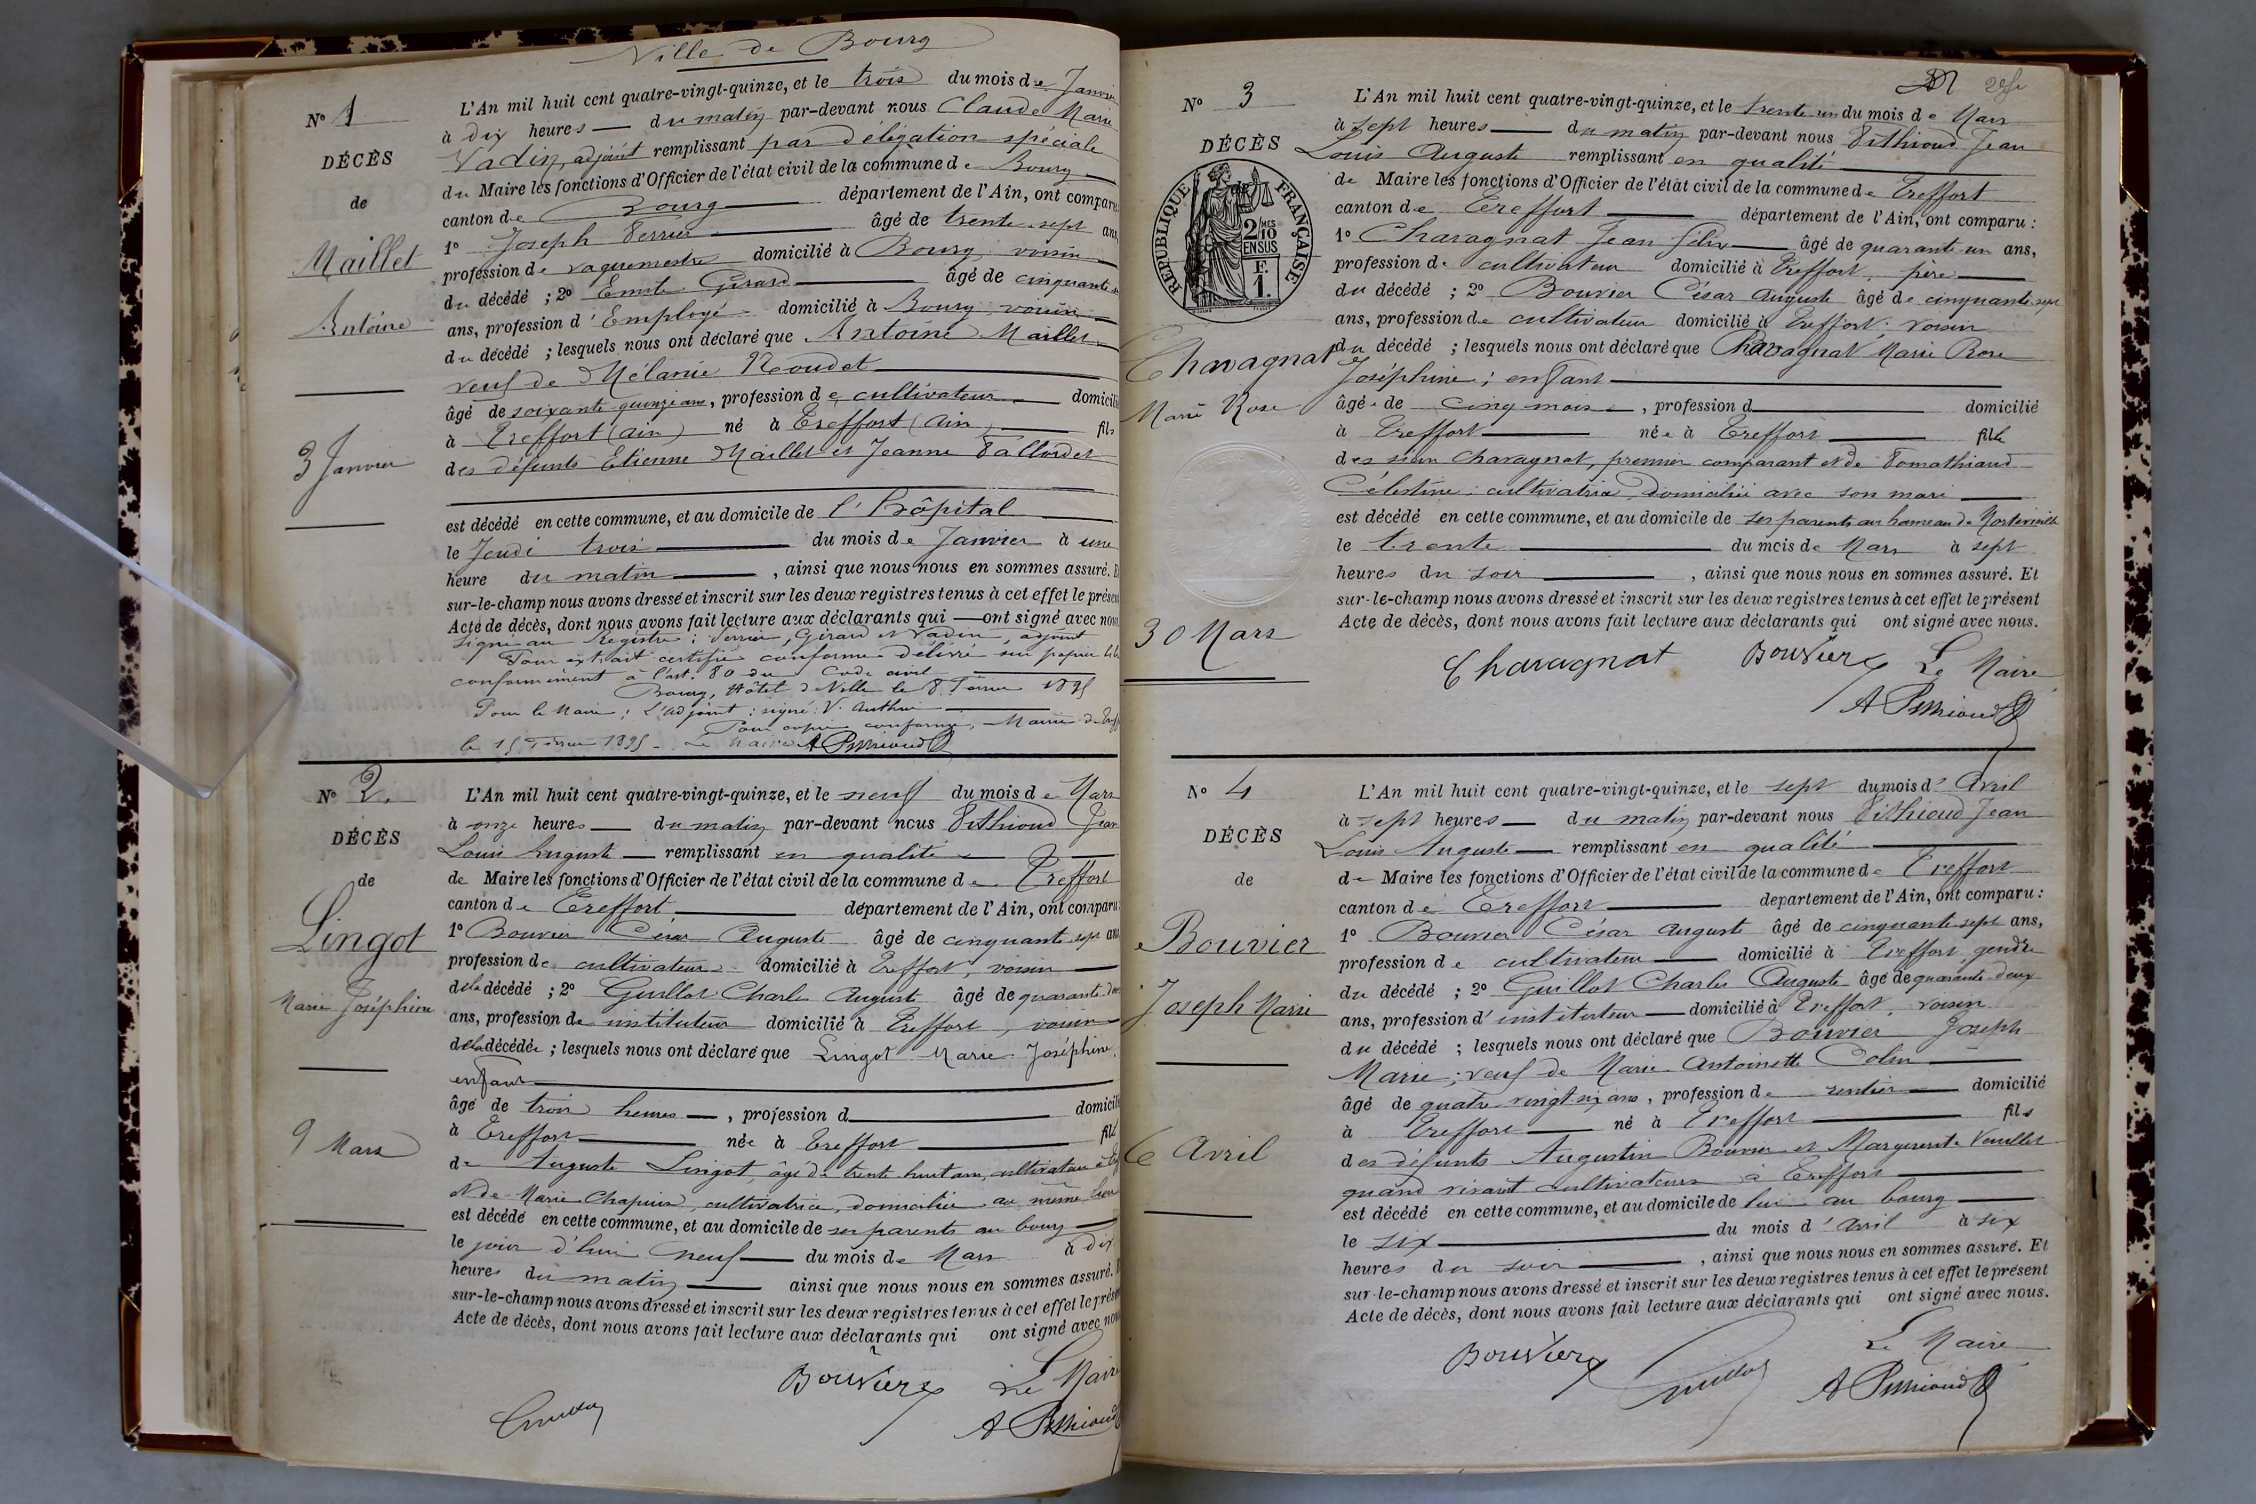 Ville de Bourg
N° 1
DÉCÈS
de
Maillet
Antoine
3 Janvier
L'An mil huit cent quatre-vingt-quinze, et le trois du mois de Janvier
à dix heures du matin par-devant nous Claude Marie
Vadin, adjoint remplissant par délégation spéciale
du Maire les fonctions d'Officier de l'état civil de la commune de Bourg
canton de Bourg département de l'Ain, ont comparu
1° Joseph Perrier âgé de trente-sept ans,
profession de vaguemestre domicilié à Bourg, voisin
du décédé ; 2° Emile Girard âgé de cinquante
ans, profession d'Employé domicilié à Bourg, voisin
du décédé ; lesquels nous ont déclaré que Antoine Maillet
veuf de Mélanie Roudet
âgé de soixante-quinze ans, profession de cultivateur domicilié
à Treffort (Ain) né à Treffort (Ain) fils
des défunts Etienne Maillet et Jeanne
est décédé en cette commune, et au domicile de l'hôpital
le Jeudi trois du mois de Janvier à une
heure du matin, ainsi que nous nous en sommes assuré. Et
sur-le-champ nous avons dressé et inscrit sur les deux registres tenus à cet effet le présent
Acte de décès, dont nous avons fait lecture aux déclarants qui ont signé avec nous
Signé au Registre : Perrier, Girard et Vadin, adjoint
Pour extrait certifié conforme délivré sur papier libre
conformément à l'art. 80 du Code civil
Bourg, Hôtel de Ville le 8 Février 1895
Pour le Maire : L'adjoint : signé : V. Authier
Pour copie conforme, Mairie de Treffort
le 15 Février 1895 - Le Maire A Pithioud
N° 2.
DÉCÈS
de
Lingot
Marie Joséphine
9 Mars
L'An mil huit cent quatre-vingt-quinze, et le neuf du mois de Mars
à onze heures du matin par-devant nous Pithioud Jean
Louis Auguste remplissant en qualité
de Maire les fonctions d'Officier de l'état civil de la commune de Treffort
canton de Treffort département de l'Ain, ont comparu:
1° Bouvier César Auguste âgé de cinquante-sept ans
profession de cultivateur domicilié à Treffort, voisin
de la décédé ; 2° Guillot Charles Auguste âgé de quarante-deux
ans, profession de instituteur domicilié à Treffort, voisin
de la décédée ; lesquels nous ont déclaré que Lingot Marie Joséphine,
enfant
âgé de trois heures, profession d domicilié
à Treffort née à Treffort fille
de Auguste Lingot, âgé de trente huit ans, cultivateur à
et de Marie Chapuis, cultivatrice, domiciliée au même lieu
est décédé en cette commune, et au domicile de ses parents au bourg
le jour d'hui neuf du mois de Mars à dix
heures du matin ainsi que nous nous en sommes assuré.
sur-le-champ nous avons dressé et inscrit sur les deux registres tenus à cet effet le présent
Acte de décès, dont nous avons fait lecture aux déclarants qui ont signé avec nous
Bouvier Le Maire
Guillot A Pithioud
N° 3
DÉCÈS
RÉPUBLIQUE FRANÇAISE
2/10 MES
EN SUS
F.
1.
Chavagnat
Marie Rose
30 Mars
L'An mil huit cent quatre-vingt-quinze, et le trente-un du mois de Mars
à sept heures du matin par-devant nous Pithioud Jean
Louis Auguste remplissant en qualité
de Maire les fonctions d'Officier de l'état civil de la commune de Treffort
canton de Treffort département de l'Ain, ont comparu :
1° Chavagnat Jean Félix âgé de quarante-un ans,
profession de cultivateur domicilié à Treffort, père
du décédé ; 2° Bouvier César Auguste âgé de cinquante-sept
ans, profession de cultivateur domicilié à Treffort ; voisin
du décédé ; lesquels nous ont déclaré que Chavagnat Marie Rose
Joséphine ; enfant
âgé de cinq mois, profession d domicilié
à Treffort née à Treffort fille
des sieur Chavagnat, premier comparant et de Pomathiaud
Célestine, cultivatrice, domiciliée avec son mari
est décédé en cette commune, et au domicile de ses parents au hameau de
le trente du mois de Mars à sept
heures du soir, ainsi que nous nous en sommes assuré. Et
sur-le-champ nous avons dressé et inscrit sur les deux registres tenus à cet effet le présent
Acte de décès, dont nous avons fait lecture aux déclarants qui ont signé avec nous.
Chavagnat Bouvier Le Maire
A Pithioud
N° 4
DÉCÈS
de
Bouvier
Joseph Marie
6 Avril
L'An mil huit cent quatre-vingt-quinze, et le sept du mois d'Avril
à sept heures du matin par-devant nous Pithioud Jean
Louis Auguste remplissant en qualité
de Maire les fonctions d'Officier de l'état civil de la commune de Treffort
canton de Treffort département de l'Ain, ont comparu :
1° Bouvier César Auguste âgé de cinquante-sept ans,
profession de cultivateur domicilié à Treffort, gendre
du décédé ; 2° Guillot Charles Auguste âgé de quarante-deux
ans, profession d'instituteur domicilié à Treffort, voisin
du décédé ; lesquels nous ont déclaré que Bouvier Joseph
Marie ; veuf de Marie Antoinette Colin
âgé de quatre vingt-six ans, profession de rentier domicilié
à Treffort né à Treffort fils
des défunts Augustin Bouvier et Marguerite Vuillet
quand vivait cultivateurs à Treffort
est décédé en cette commune, et au domicile de lui au bourg
le six du mois d'Avril à six
heures du soir, ainsi que nous nous en sommes assuré. Et
sur-le-champ nous avons dressé et inscrit sur les deux registres tenus à cet effet le présent
Acte de décès, dont nous avons fait lecture aux déclarants qui ont signé avec nous.
Bouvier Guillot Le Maire
A Pithioud